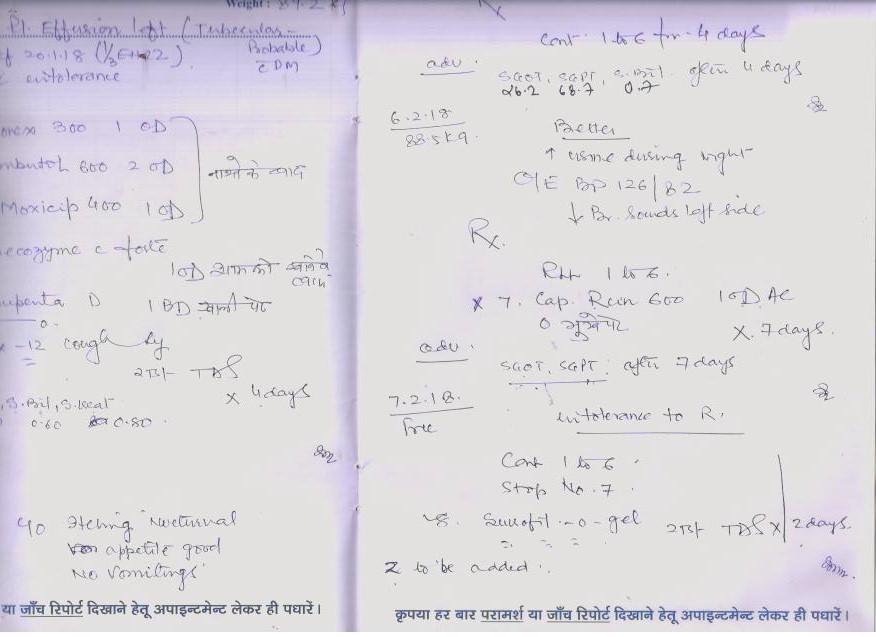 Weight: 89.2 kg
Pl. Effusion left (Tubercular-
Probable)
20.1.18 (1/3 EHRZ)
c DM
intolerance
300 1 OD
mbutol 600 2 OD
नाश्ते के बाद
Moxicip 400 1 OD
ecozyme c forte
1 OD शाम को खाने के
बाद
D 1 BD खाली पेट
-12 cough Ly
2TSF TDS
x 4 days
S. Bil, S. Creat
0.60 0.80
C/o Itching Nocturnal
appetite good
No Vomitings
या जाँच रिपोर्ट दिखाने हेतू अपाइन्टमेन्ट लेकर ही पधारें।
Rx
Cont. 1 to 6 for 4 days
adv.
SGOT, SGPT, S. Bil. after 4 days
26.2 68.7 0.7
6.2.18
88.5 kg.
Better
↑ urine during night
O/E BP 126/82
↓ Br. Sounds left side
Rx.
Rpt 1 to 6.
x 7. Cap. Rcin 600 1 OD AC
x. 7 days.
adv.
SGOT, SGPT: after 7 days
7.2.18.
Free
intolerance to R.
Cont 1 to 6.
Stop No. 7.
8. -o-gel 2TSF TDS x 2 days.
Z to be added.
कृपया हर बार परामर्श या जाँच रिपोर्ट दिखाने हेतू अपाइन्टमेन्ट लेकर ही पधारें।